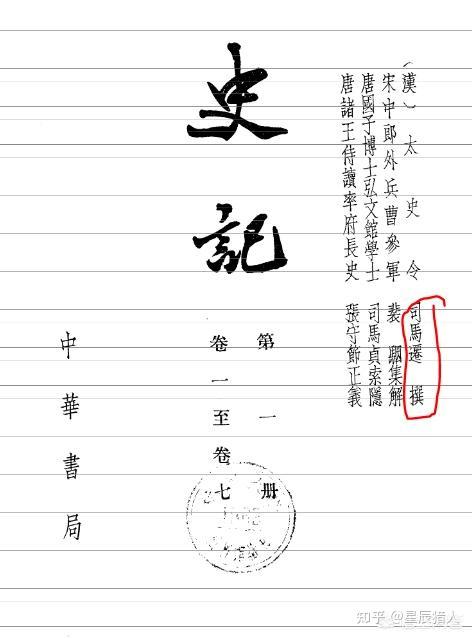 （漢）太史令　司馬遷　撰
宋中郎外兵曹參軍　裴　駰集解
唐國子博士弘文館學士　司馬貞索隱
唐諸王侍讀率府長史　張守節正義
史記
第一册
卷一至卷七
中華書局
知乎 @星辰猎人